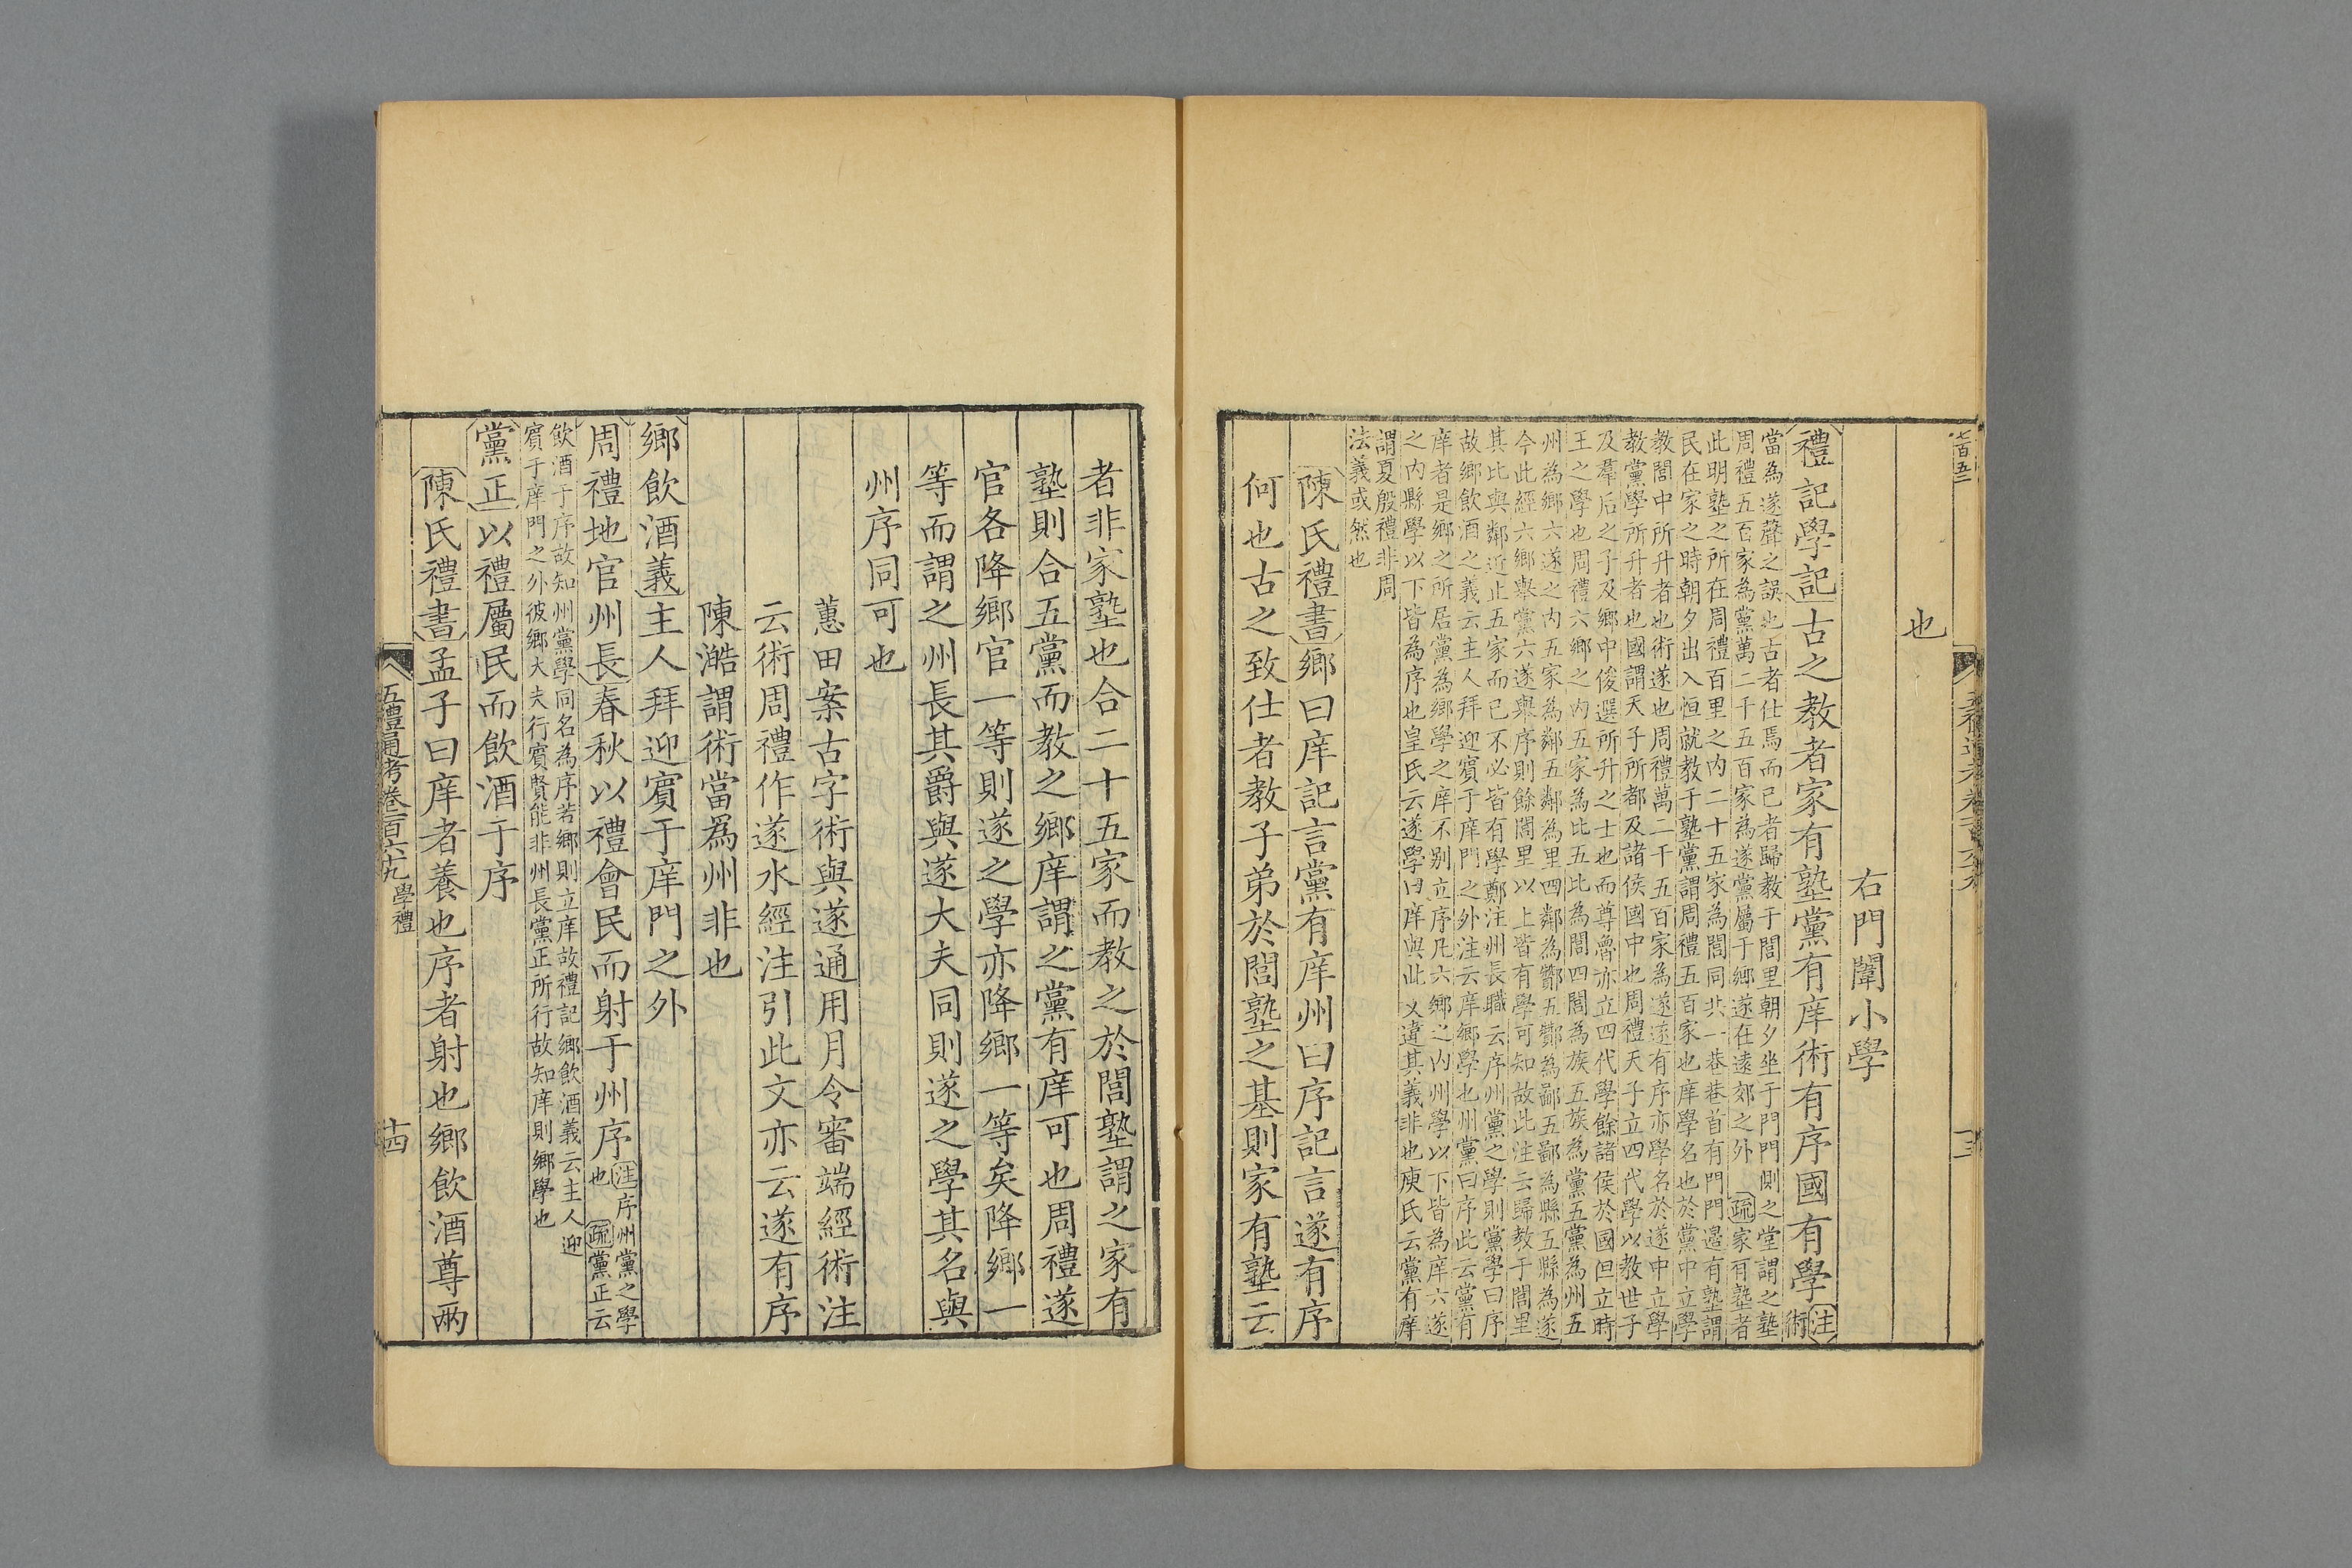 也
右門闈小學
禮記學記古之教者家有塾黨有庠術有序國有學注術
當為遂聲之誤也古者仕焉而已者歸教于閭里朝夕坐于門門側之堂謂之塾
周禮五百家為黨萬二千五百家為遂黨屬于鄉遂在遠郊之外疏家有塾者
此明塾之所在周禮百里之內二十五家為閭同共一巷巷首有門門邊有塾謂
民在家之時朝夕出入恒就教于塾黨謂周禮五百家也庠學名也於黨中立學
教閭中所升者也術遂也周禮萬二千五百家為遂遂有序亦學名於遂中立學
教黨學所升者也國謂天子所都及諸侯國中也周禮天子立四代學以教世子
及羣后之子及鄉中俊選所升之士也而尊魯亦立四代學餘諸侯於國但立時
王之學也周禮六鄉之內五家為比五比為閭四閭為族五族為黨五黨為州五
州為鄉六遂之內五家為鄰五鄰為里四鄰為酇五酇為鄙五鄙為縣五縣為遂
今此經六鄉舉黨六遂舉序則餘閭里以上皆有學可知故此注云歸教于閭里
其比與鄰近止五家而已不必皆有學鄭注州長職云序州黨之學則黨學曰序
故鄉飲酒之義云主人拜迎賓于庠門之外注云庠鄉學也州黨曰序此云黨有
庠者是鄉之所居黨為鄉學之庠不别立序凡六鄉之內州學以下皆為庠六遂
之內縣學以下皆為序也皇氏云遂學曰庠與此文違其義非也庾氏云黨有庠
謂夏殷禮非周
法義或然也
陳氏禮書鄉曰庠記言黨有庠州曰序記言遂有序
何也古之致仕者教子弟於閭塾之基則家有塾云
者非家塾也合二十五家而教之於閭塾謂之家有
塾則合五黨而教之鄉庠謂之黨有庠可也周禮遂
官各降鄉官一等則遂之學亦降鄉一等矣降鄉一
等而謂之州長其爵與遂大夫同則遂之學其名與
州序同可也
蕙田案古字術與遂通用月令審端經術注
云術周禮作遂水經注引此文亦云遂有序
陳澔謂術當爲州非也
鄉飲酒義主人拜迎賓于庠門之外
周禮地官州長春秋以禮會民而射于州序注序州黨之學也疏黨正云
飲酒于序故知州黨學同名為序若鄉則立庠故禮記鄉飲酒義云主人迎
賓于庠門之外彼鄉大夫行賓賢能非州長黨正所行故知庠則鄉學也
黨正以禮屬民而飲酒于序
陳氏禮書孟子曰庠者養也序者射也鄉飲酒尊兩
五禮通考卷一百六十九 學禮
十四